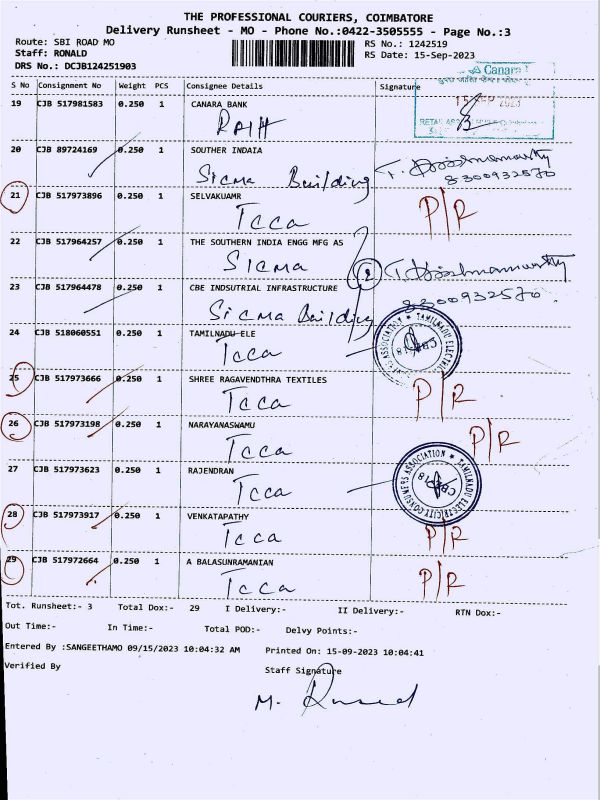 THE PROFESSIONAL COURIERS, COIMBATORE
Delivery Runsheet - MO - Phone No.:0422-3505555 - Page No.:3
Route: SBI ROAD MO RS No.: 1242519
Staff: RONALD RS Date: 15-Sep-2023
DRS No.: DCJB124251903
S No Consignment No Weight PCS Consignee Details Signature
Canara
19 CJB 517981583 0.250 1 CANARA BANK
15 SEP 2023
20 CJB 89724169 0.250 1 SOUTHER INDAIA
Sicma Building 8300932570
21 CJB 517973896 0.250 1 SELVAKUAMR
Tcca P/R
22 CJB 517964257 0.250 1 THE SOUTHERN INDIA ENGG MFG AS
SICMA
23 CJB 517964478 0.250 1 CBE INDSUTRIAL INFRASTRUCTURE
Sicma Building 8300932570.
24 CJB 518060551 0.250 1 TAMILNADU-ELE
Tcca
25 CJB 517973666 0.250 1 SHREE RAGAVENDHRA TEXTILES
Tcca P/R
26 CJB 517973198 0.250 1 NARAYANASWAMU
Tcca P/R
27 CJB 517973623 0.250 1 RAJENDRAN
Tcca
TAMILNADU ELECTRICITY CONSUMERS ASSOCIATION
CBE-18
28 CJB 517973917 0.250 1 VENKATAPATHY
Tcca P/R
29 CJB 517972664 0.250 1 A BALASUNRAMANIAN
Tcca P/R
Tot. Runsheet:- 3 Total Dox:- 29 I Delivery:- II Delivery:- RTN Dox:-
Out Time:- In Time:- Total POD:- Delvy Points:-
Entered By :SANGEETHAMO 09/15/2023 10:04:32 AM Printed On: 15-09-2023 10:04:41
Verified By Staff Signature